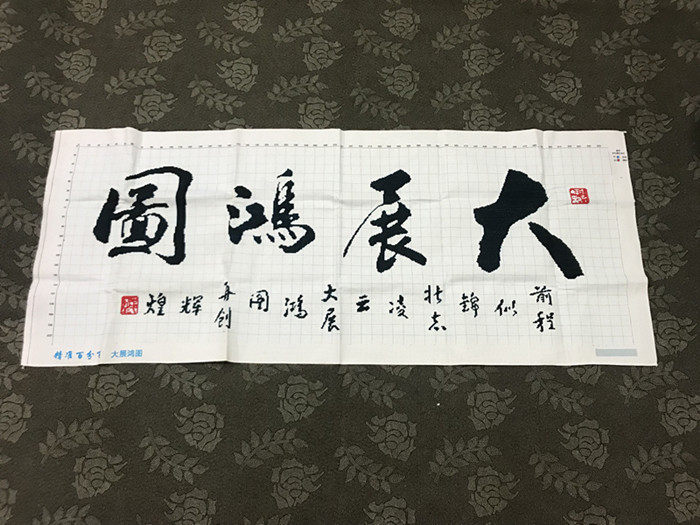 大展鴻圖
前程似錦 壯志凌云 大展鴻圖 再創輝煌
精准百分 大展鸿图